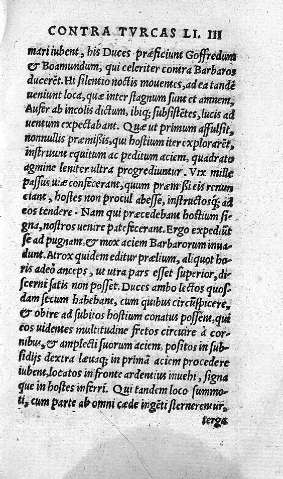 CONTRA TVRCAS LI. III
mari iubent, his Duces præficiunt Goffredum
& Boamundum, qui celeriter contra Barbaros
ducerẽt. Hi silentio noctis mouentes, ad ea tandẽ
ueniunt loca, quæ inter stagnum sunt et amnem,
Aufer ab incolis dictum, ibiq; subsistẽtes, lucis ad
uentum expectabant. Quæ ut primum affulsit,
nonnullis præmissis, qui hostium iter explorarẽt,
instruunt equitum ac peditum aciem, quadrato
agmine leniter ultra progrediuntur. Vix mille
passus uiæ confecerant, quum præmissi eis renun
ciant, hostes non procul abesse, instructosq; ad
eos tendere. Nam qui præcedebant hostium si=
gna, nostros uenire patefecerant. Ergo expediũt
se ad pugnam, & mox aciem Barbarorum inua=
dunt. Atrox quidem editur prælium, aliquot ho=
ris adeo anceps, ut utra pars esset superior, di=
scerni satis non posset. Duces ambo lectos quos=
dam secum habebant, cum quibus circũspicere,
& obire ad subitos hostium conatus possent, qui
eos uidentes multitudine fretos circuire à cor=
nibus, & amplecti suorum aciem, positos in sub=
sidijs dextra læuaq; in primã aciem procedere
iubent, locatos in fronte ardentius inuehi, signa
que in hostes inferri. Qui tandem loco summo=
ti, cum parte ab omni cæde ingẽti sternerentur,
terga